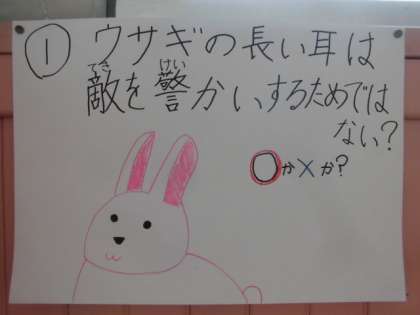 ① ウサギの長い耳は
てき けい
敵を警かいするためでは
ない?
○か×か?